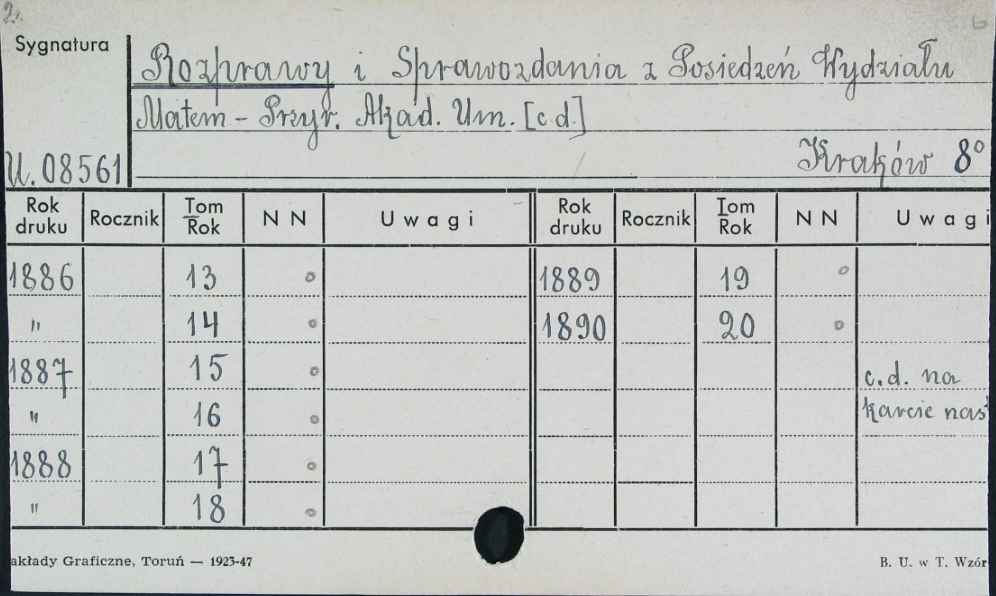 2.
6
Sygnatura
Rozprawy i Sprawozdania z Posiedzeń Wydziału
Matem - Przyr. Akad. Um. [c d.]
U. 08561
Kraków 8°
Rok druku Rocznik Tom Rok N N Uwagi Rok druku Rocznik Tom Rok N N Uwagi
1886 13 o 1889 19 o
" 14 o 1890 20 o
1887 15 o c.d. na
" 16 o karcie nas
1888 17 o
" 18 o
akłady Graficzne, Toruń — 1923-47 B. U. w T. Wzór